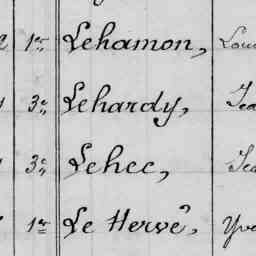 1er Lehamon, Lou
3e Lehardy, Jea
3e Lehec, Jea
1er Le Hervé, Yve